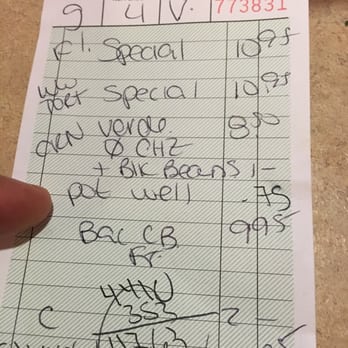 9 4 V. 773831
fl. Special 10.95
WW
PORT Special 10.95
CKN Verde 8.50
Ø CHZ
+ Blk Beans 1-
pot well .75
Bac CB 9.95
Fr.
4410
C 353 2-